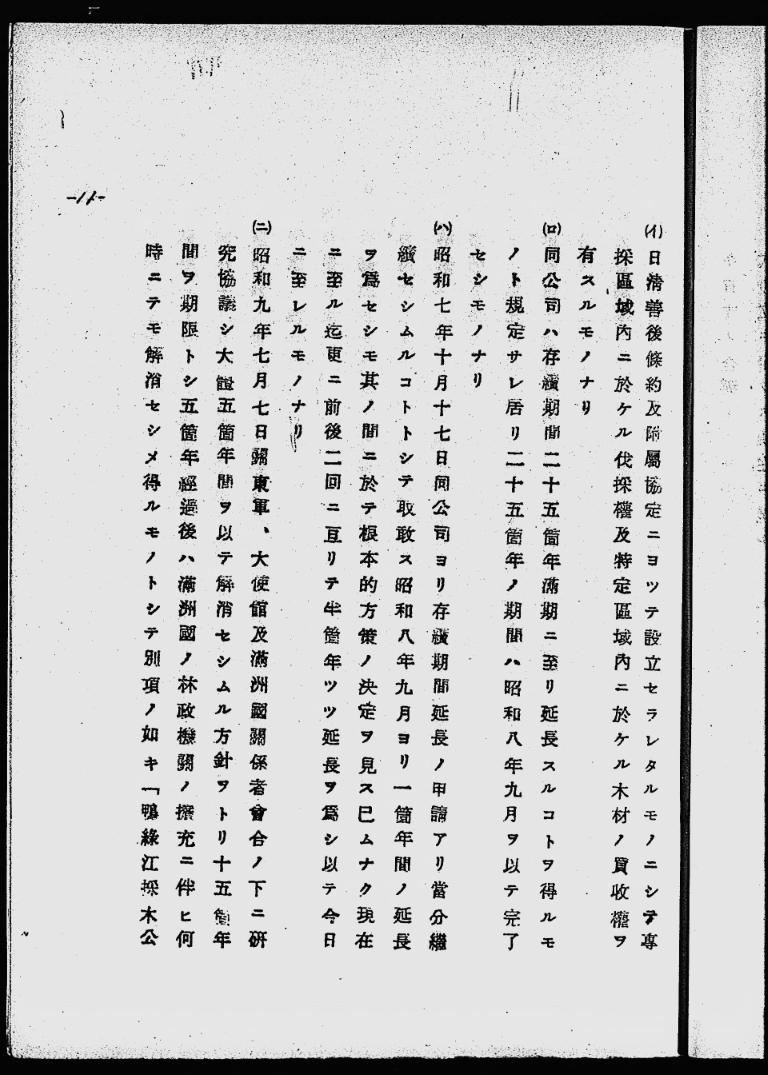 (イ)日淸善後條約及附屬協定ニヨツテ設立セラレタルモノニシテ專
採區域內ニ於ケル伐採權及特定區域內ニ於ケル木材ノ買收權ヲ
有スルモノナリ
(ロ)同公司ハ存續期間二十五箇年滿期ニ至リ延長スルコトヲ得ルモ
ノト規定サレ居リ二十五箇年ノ期間ハ昭和八年九月ヲ以テ完了
セシモノナリ
(ハ)昭和七年十月十七日同公司ヨリ存續期間延長ノ申請アリ當分繼
續セシムルコトトシテ取敢ス昭和八年九月ヨリ一箇年間ノ延長
ヲ爲セシモ其ノ間ニ於テ根本的方策ノ決定ヲ見ス已ムナク現在
ニ至ル迄更ニ前後二回ニ亙リテ半箇年ツツ延長ヲ爲シ以テ今日
ニ至レルモノナリ
(ニ)昭和九年七月七日關東軍、大使館及滿洲國關係者會合ノ下ニ硏
究協議シ大體五箇年間ヲ以テ解消セシムル方針ヲトリ十五箇年
間ヲ期限トシ五箇年經過後ハ滿洲國ノ林政機關ノ擴充ニ伴ヒ何
時ニテモ解消セシメ得ルモノトシテ別項ノ如キ「鴨綠江採木公
-11-